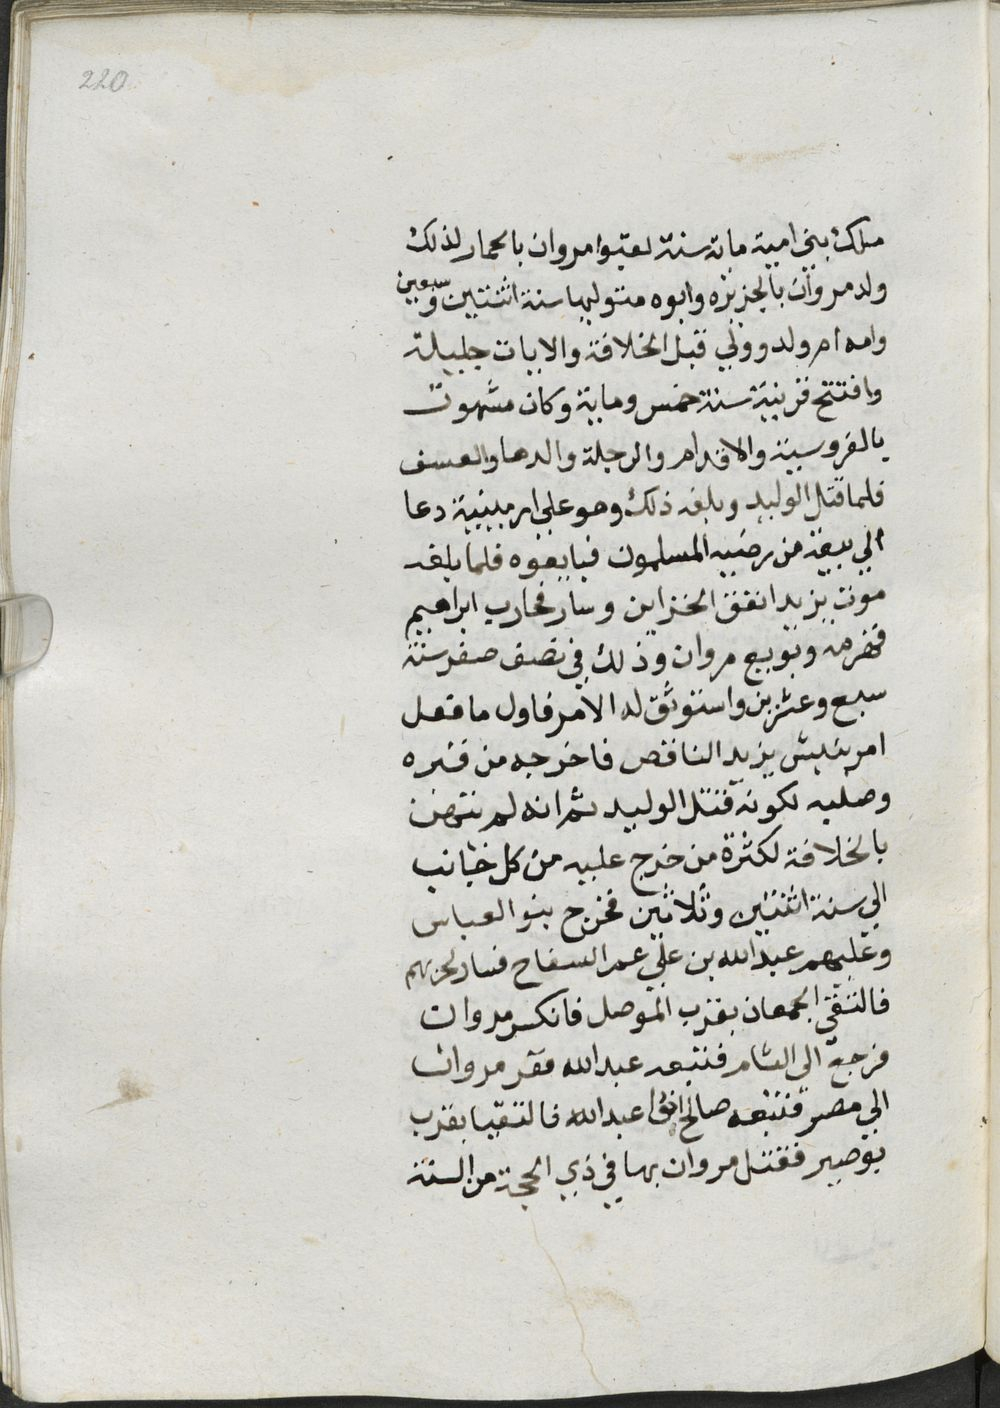 220
ملك بني امية ماية سنة لقبوا مروان بالحمار لذلك
ولد مروان بالجزيزه وابوه متوليها سنة اثنتين وسبعين
وامه ام ولد وولي قبل الخلافة والايات جليلة
وافتتح قزينية سنة خمس وماية وكان مشهوت
بالفروسية والاقدام والرجلة والدها والعسف
فلما قتل الوليد وبلغه ذلك وهو على ارمينية دعا
الي بيعة من رضيه المسلمون فبايعوه فلما بلغه
موت يزيد انفق الخزاين وسار فحارب ابراهيم
فهزمه وبويع مروان وذلك في نصف صفر سنة
سبع وعشرين واستوثق له الامر فاول ما فعل
امر بنبش يزيد الناقص فاخرجه من قبره
وصلبه لكونه قتل الوليد ثم انه لم نتهن
بالخلافة لكثرة من خرج عليه من كل جانب
الي سنة اثنتين وثلاثين فخرج بنو العباس
وعليهم عبد الله بن علي عم السفاح فسار لحزبهم
فالتقي الجمعان بقرب الموصل فانكسر مروان
فرجع الى الشام فتتبعه عبد الله ففر مروان
الي مصر فتتبعه صالح اخوا عبد الله فالتقيا بقرب
بوصير فقتل مروان بها في ذي الحجة من السنة